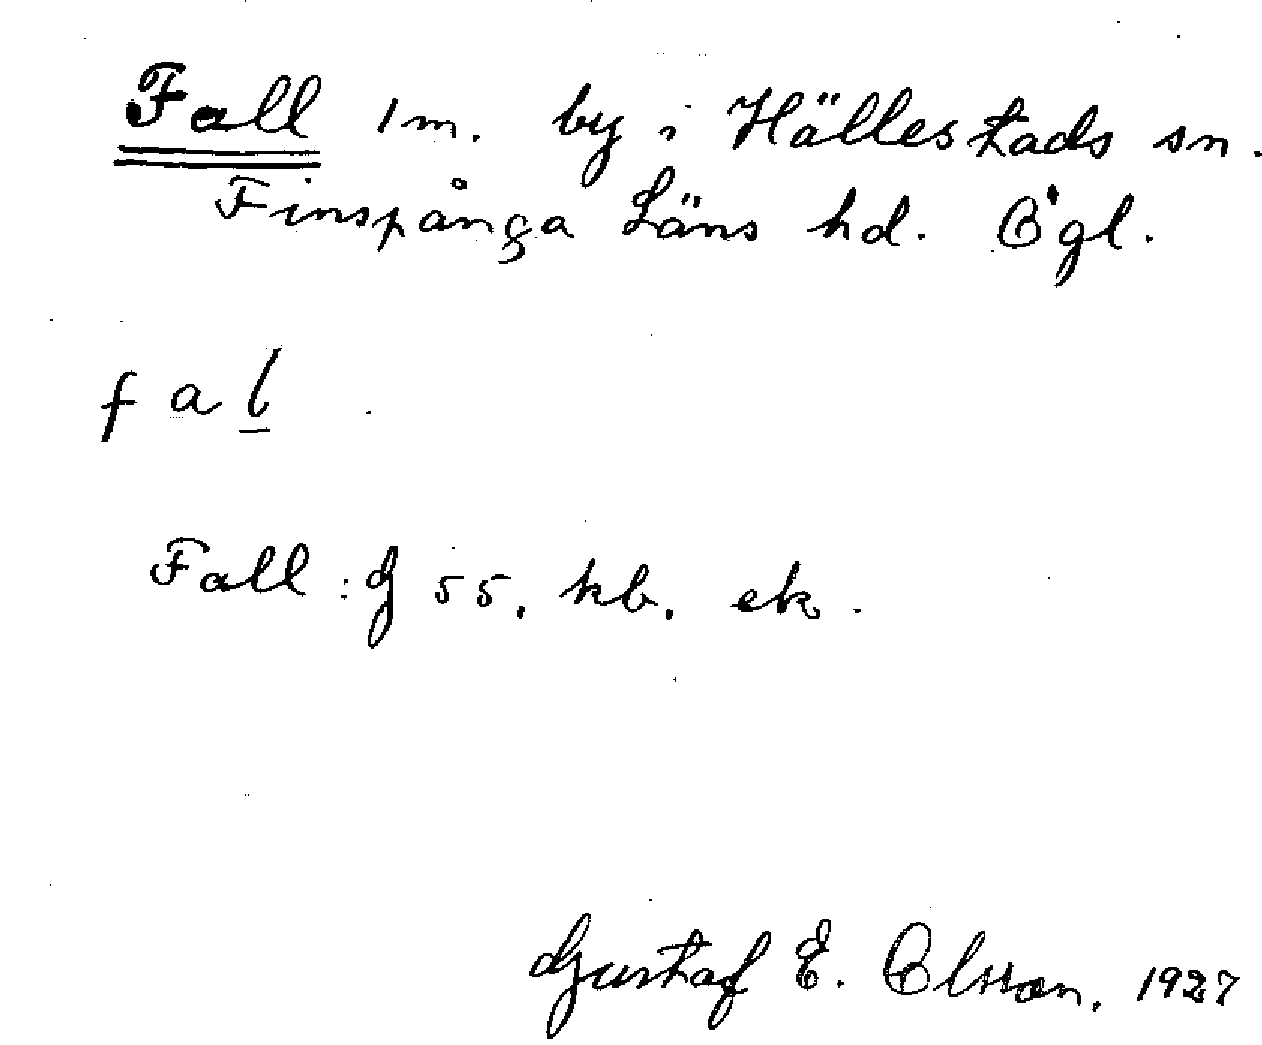 Fall 1 m. by i Hällestads sn.
Finspånga Läns hd. Ögl.
f a l
Fall: G 55. kb. ek.
Gustaf E. Olsson. 1927